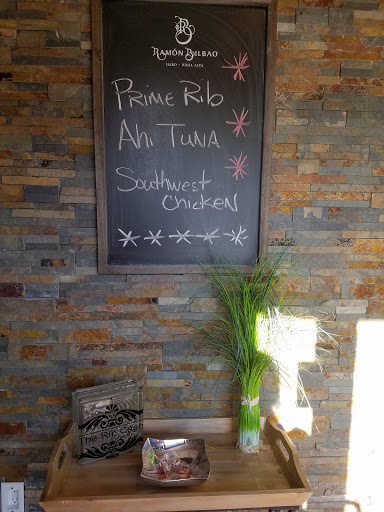 RAMÓN BILBAO
HARO - RIOJA ALTA
PRIME RIB
AHI TUNA
SOUTHWEST
CHICKEN
The Rip